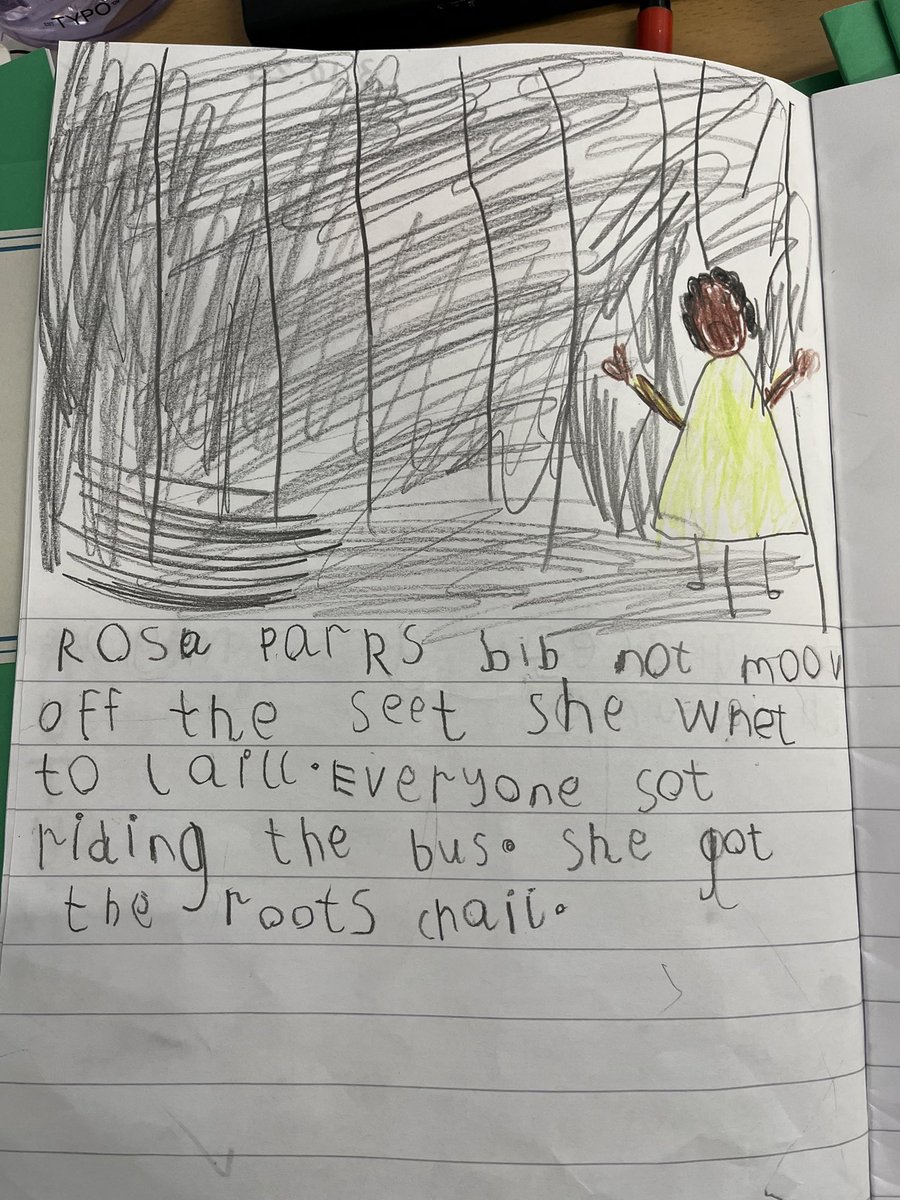 TYPO
Rosa ParRs bib not moov
off the seet she whet
to laill. Everyone sot
riding the bus. she got
the roots chaii.